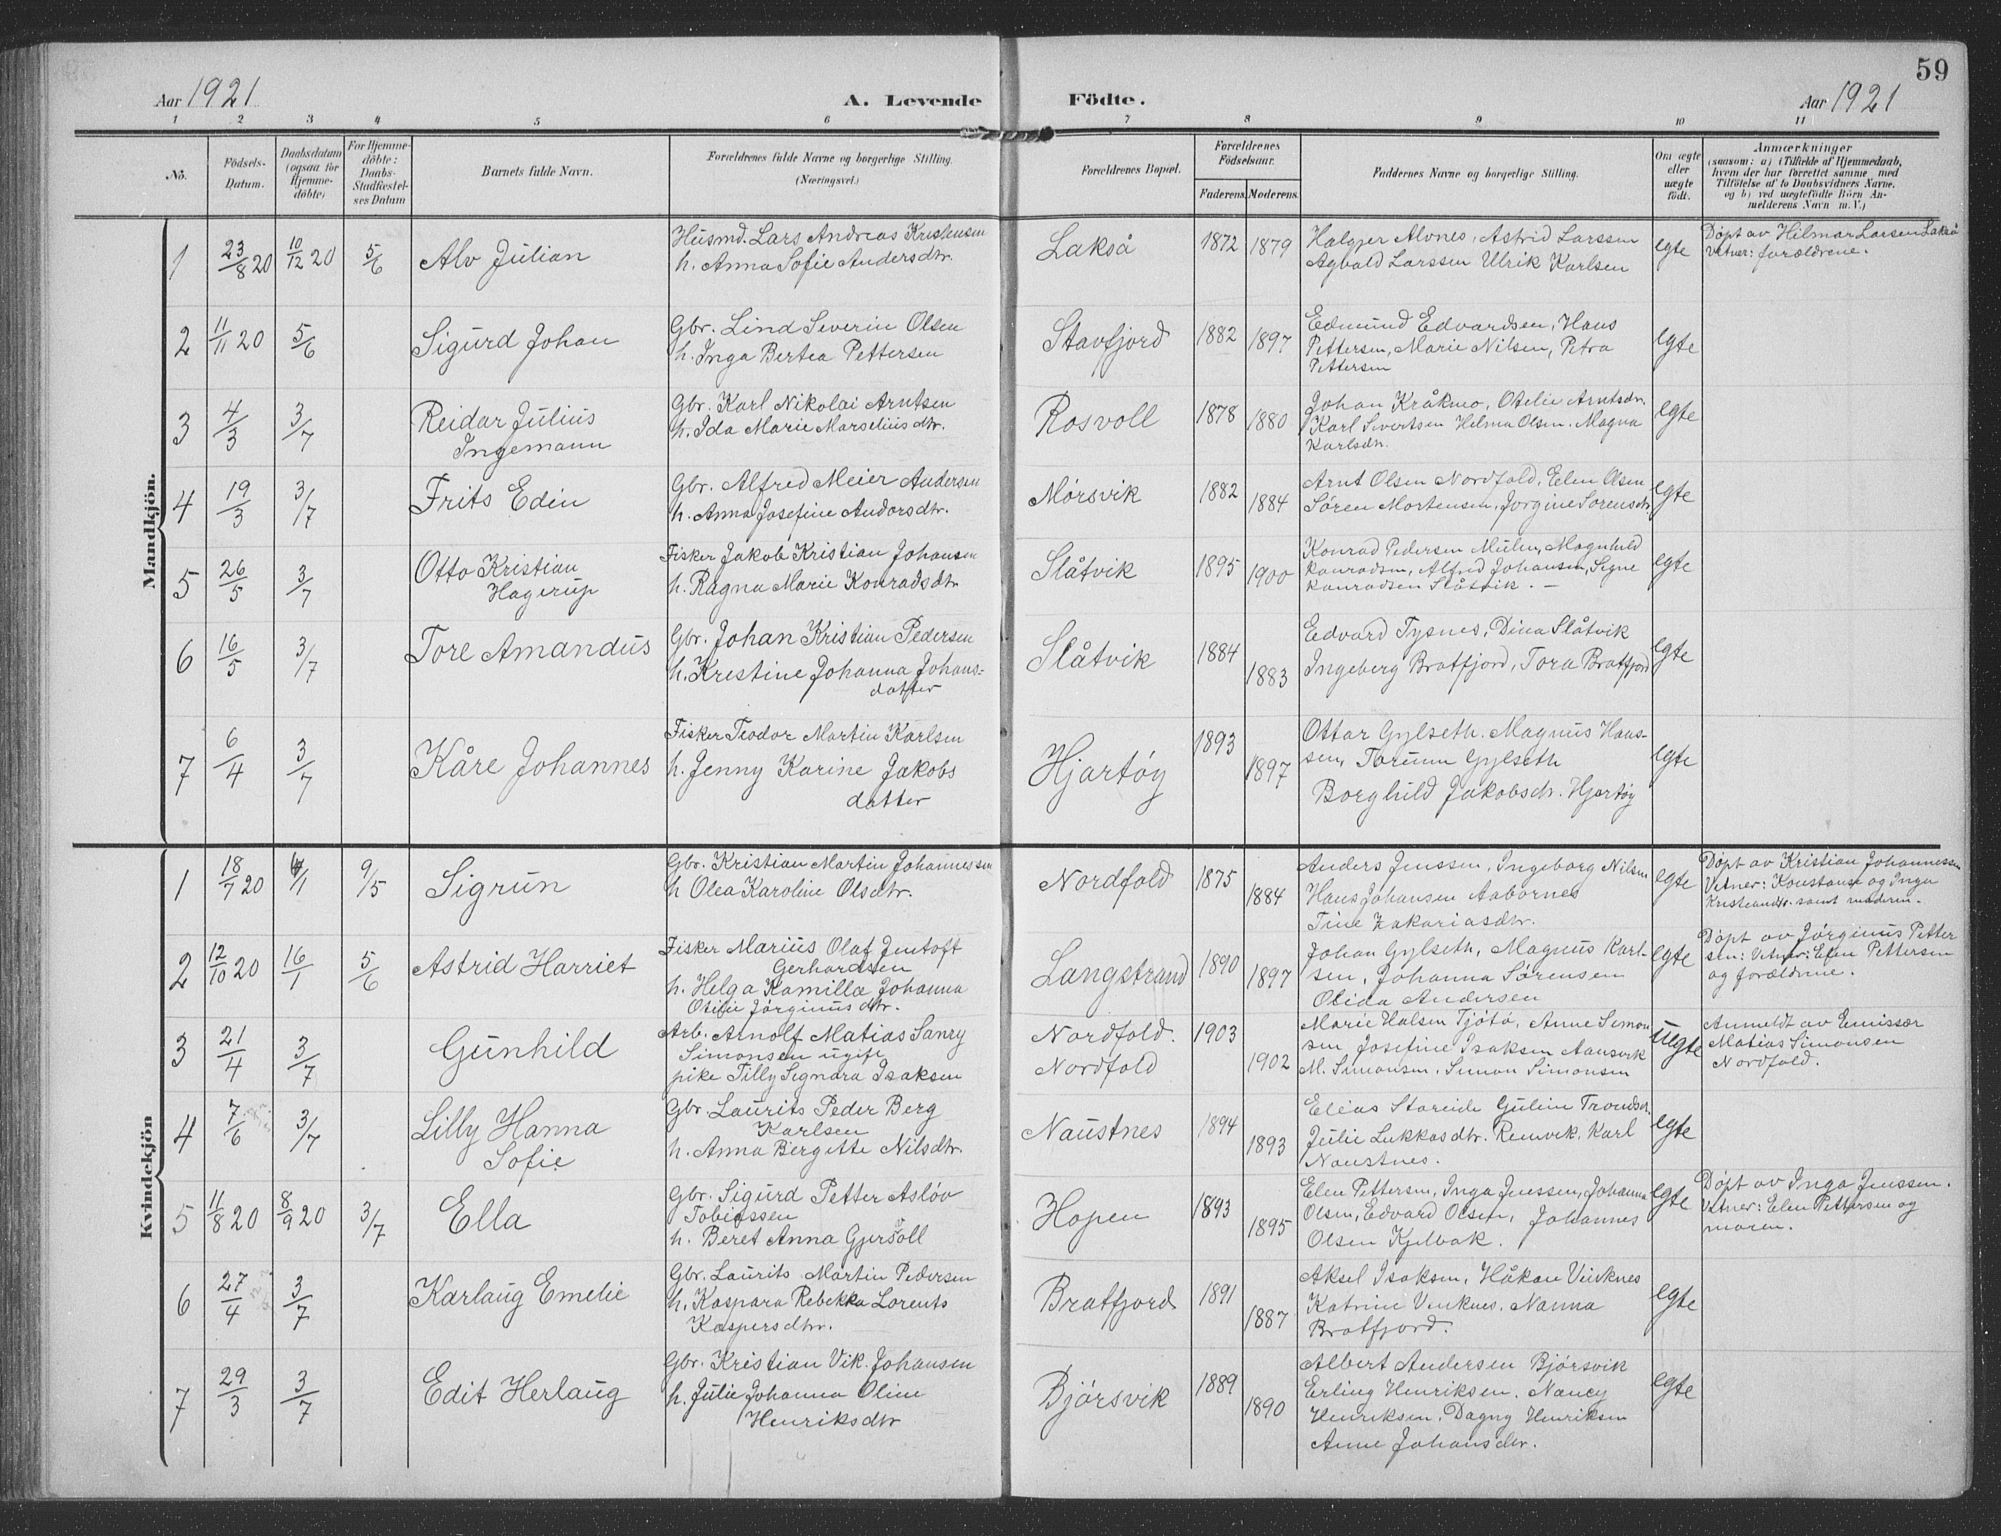 59
Aar 1921
A. Levende Födte.
Aar 1921
1 2 3 4 5 6 7 8 9 10 11
Nö.
Födsels-Datum.
Daabsdatum (ogsaa for Hjemme-döbte)
For Hjemme-döbte: Daabs-Stadfæstel-ses Datum
Barnets fulde Navn.
Forældrenes fulde Navne og borgerlige Stilling. (Næringsvei.)
Forældrenes Bopæl.
Forældrenes Födselsaar.
Faderens. Moderens.
Faddernes Navne og borgerlige Stilling.
Om ægte eller uægte födt.
Anmærkninger
(saasom: a) i Tilfælde af Hjemmedaab,
hvem der har forrettet samme, med
Tilföielse af to Daabsvidners Navne,
og b) ved uægtefödte Börn An-
melderens Navn m. V.)
Mandkjön.
1 23/8 20 10/12 20 5/6 Alv Julian
Husmd. Lars Andreas Kristensen
h. Anna Sofie Andersdtr.
Lakså 1872 1879
Halgjer Alvnes, Astrid Larssen
Agvald Larssen Ulrik Karlsen
egte
Döpt av Hilmar Larsen Lakså
Vitner: forældrene.
2 11/11 20 5/6 Sigurd Johan
Gbr. Lind Severin Olsen
h. Inga Bertea Pettersen
Stavfjord 1882 1897
Edmund Edvardsen, Hans
Pettersen, Marie Nilsen, Petra
Pettersen
egte
3 4/3 3/7 Reidar Julius
Ingemann
Gbr. Karl Nikolai Arntsen
h. Ida Marie Marseliusdtr.
Rosvoll 1878 1880
Johan Kråkmo, Otelie Arntsdr.
Karl Sivertsen Helma Olsen. Magna
Karlsdtr.
egte
4 19/3 3/7 Frits Edin
Gbr. Alfred Meier Andersen
h. Anna Josefine Andorsdtr.
Mørsvik 1882 1884
Arnt Olsen Nordfold, Elen Olsen
Søren Mortensen, Jørgine Sørensdtr
egte
5 26/5 3/7 Otto Kristian
Hagerup
Fisker Jakob Kristian Johansen
h. Ragna Marie Konradsdtr
Slåtvik 1895 1900
Konrad Pedersen Mulen, Magnhild
Konradsen, Alfred Johansen, Signe
Konradsen Slåtvik. —
egte
6 16/5 3/7 Tore Amandus
Gbr. Johan Kristian Pedersen
h. Kristine Johanna Johans-
datter
Slåtvik 1884 1883
Edvard Tysnes, Dina Slåtvik
Ingeberg Bratfjord, Tora Bratfjord
egte
7 6/4 3/7 Kåre Johannes
Fisker Teodor Martin Karlsen
h. Jenny Karine Jakobs
datter
Hjartøy 1893 1897
Ottar Gylseth. Magnus Hans-
sen, Torunn Gylseth
Borghild Jakobsdtr. Hjartøy
egte
Kvindekjön
1 18/7 20 9/5 Sigrun
Gbr. Kristian Martin Johannessen
h Olea Karoline Olsdtr.
Nordfold 1875 1884
Anders Jenssen, Ingeborg Nilsen
Hans Johansen Aabornes
Tine Zakariasdtr.
egte
Döpt av Kristian Johannessen
Vitner: Konstanse og Inga
Kristiansdtr. samt moderen.
2 12/10 20 16/1 5/6 Astrid Harriet
Fisker Marius Olaf Jentoft
Gerhardsen
h. Helga Kamilla Johanna
Otilie Jørginusdtr.
Langstrand 1890 1897
Johan Gylseth, Magnus Karl-
sen, Johanna Sørensen
Olida Andersen
egte
Döpt av Jørginus Petter
sen: Vitner: Elen Pettersen
og forældrene.
3 21/4 3/7 Gunhild
Arb. Arnolf Matias Sanry
Simonsen ugift
pike Tilly Signora Isaksen
Nordfold.
Nordfold
1903 1902
Marie Halsen Tjøtø, Anne Simon
sen Josefine Isaksen Aansvik
M. Simonsen. Simon Simonsen
uegte
Anmeldt av Emissær
Matias Simonsen
Nordfold.
4 7/6 3/7 Lilly Hanna
Sofie
Gbr. Laurits Peder Berg
Karlsen
h. Anna Bergitte Nilsdtr.
Naustnes 1894 1893
Elias Storeide Guline Trondsen
Julie Lukkasdtr. Remvik. Karl
Naustnes.
egte
5 11/8 20 8/9 20 3/7 Ella
Gbr. Sigurd Petter Asløv
Tobiassen
h. Beret Anna Gjersoll
Hopen 1893 1895
Elen Pettersen, Inga Jenssen, Johanna
Olsen, Edvard Olsen, Johannes
Olsen Kjelvak.
egte
Döpt av Inga Jenssen.
Vitner: Elen Pettersen og
moren.
6 27/4 3/7 Karlaug Emelie
Gbr. Laurits Martin Pedersen
h. Kaspara Rebekka Lorents
Kaspersdtr.
Bratfjord 1891 1887
Aksel Isaksen, Håkan Vinknes
Katrine Vinknes. Nanna
Bratfjord.
egte
7 29/3 3/7 Edit Herlaug
Gbr. Kristian Vik. Johansen
h. Julie Johanna Oline
Henriksdtr
Bjørsvik 1889 1890
Albert Andersen Bjørsvik
Erling Henriksen. Nancy
Henriksen. Dagny Henriksen
Anne Johansdtr.
egte